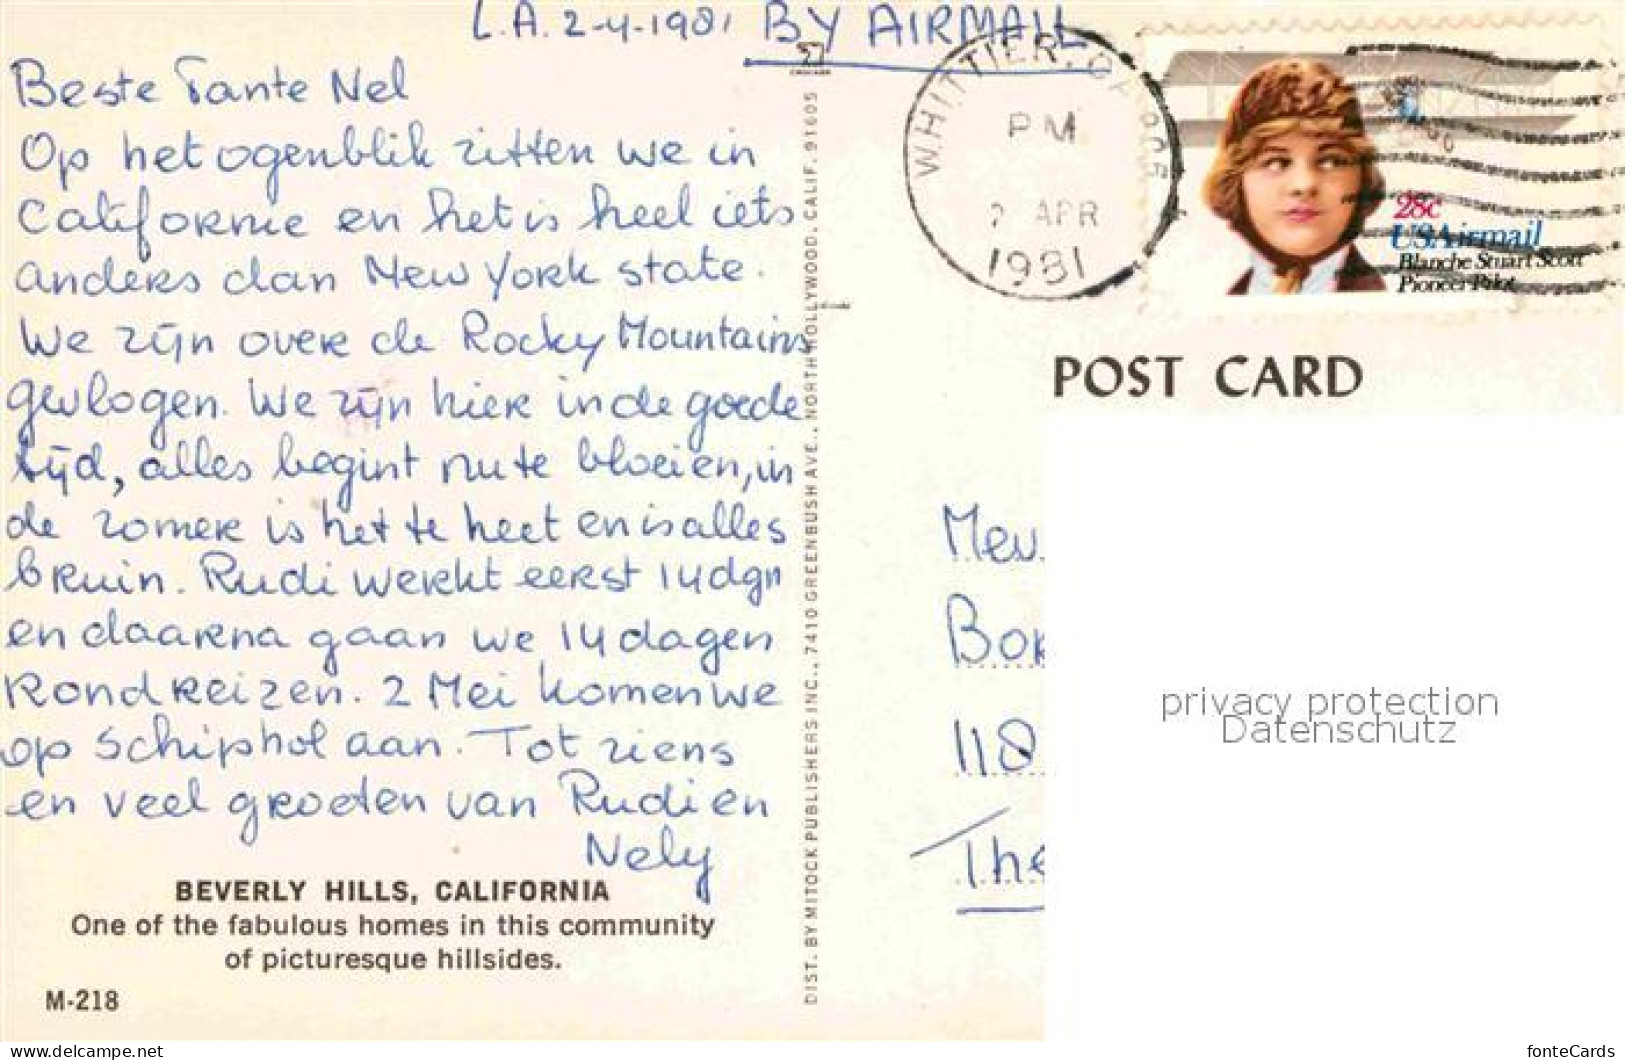 L.A. 2-4-1981 BY AIRMAIL
Beste Tante Nel
Op het ogenblik zitten we in
Californie en het is heel iets
anders dan New York state.
We zijn over de Rocky Mountains
gevlogen. We zijn hier in de goede
tijd, alles begint nu te bloeien, in
de zomer is het te heet en is alles
bruin. Rudi werkt eerst 14 dgn
en daarna gaan we 14 dagen
Rondreizen. 2 Mei komen we
op Schiphol aan. Tot ziens
en veel groeten van Rudi en
Nely
BEVERLY HILLS, CALIFORNIA
One of the fabulous homes in this community
of picturesque hillsides.
M-218
DIST. BY MITOCK PUBLISHERS INC., 7410 GREENBUSH AVE., NORTH HOLLYWOOD, CALIF. 91605
WHITTIER, CA
PM
2 APR
1981
28c
USAirmail
Blanche Stuart Scott
Pioneer Pilot
POST CARD
Mev.
Bor
118
The
privacy protection
Datenschutz
www.delcampe.net
fonteCards